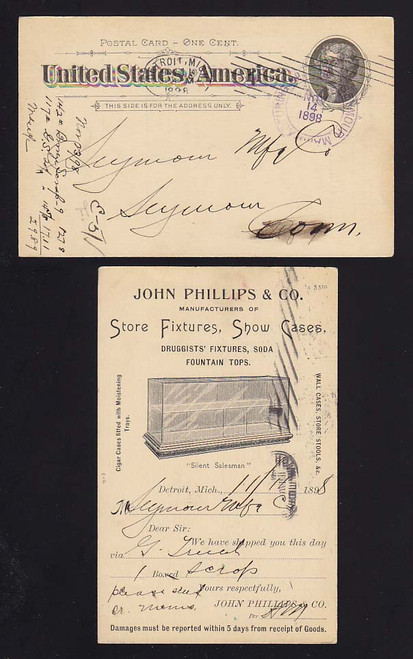 POSTAL CARD – ONE CENT.
United States of America.
THIS SIDE IS FOR THE ADDRESS ONLY.
DETROIT, MICH.
1898
14
1898
Seymour Mfg Co
Seymour
Conn.
JOHN PHILLIPS & CO.
MANUFACTURERS OF
Store Fixtures, Show Cases,
DRUGGISTS' FIXTURES, SODA
FOUNTAIN TOPS.
Cigar Cases fitted with Moistening
Trays.
WALL CASES, STORE STOOLS, &c.
"Silent Salesman"
Detroit, Mich., 11/12 1898
M Seymour Mfg Co
Dear Sir:
We have shipped you this day
via G. Trunk
1 Boxed scrap
please send Yours respectfully,
cr. memo. JOHN PHILLIPS & CO.
Per
Damages must be reported within 5 days from receipt of Goods.